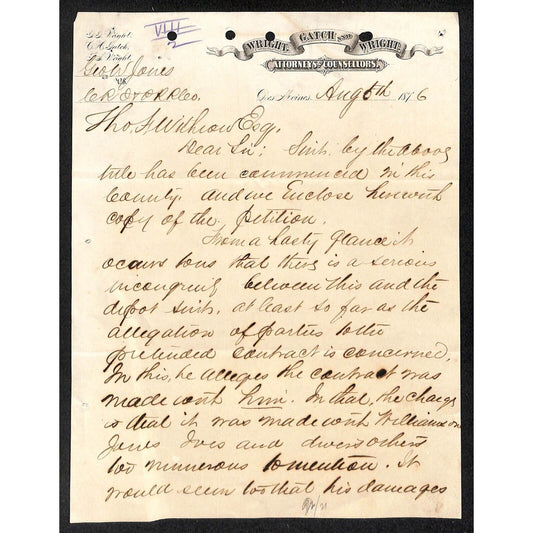 G.G. Wright.
C.A. Gatch.
T.S. Wright.
VIII
2
WRIGHT, GATCH AND WRIGHT,
ATTORNEYS & COUNSELLORS
Des Moines, Aug 5th 1876
Geo W Jones
vs
C R I & P R R Co.
Tho. F Withrow Esq.
Dear Sir; Suit by the above
title has been commenced in this
County. and we Enclose herewith
copy of the petition.
From a hasty glance it
occurs to us that there is a serious
incongruity between this and the
depot suit, at least so far as the
allegation of parties to the
pretended contract is concerned.
In this, he alleges the contract was
made with him. In that, he charges
that it was made with Williamson
Jones Ives and divers others
too numerous to mention. It
would seem too that his damages